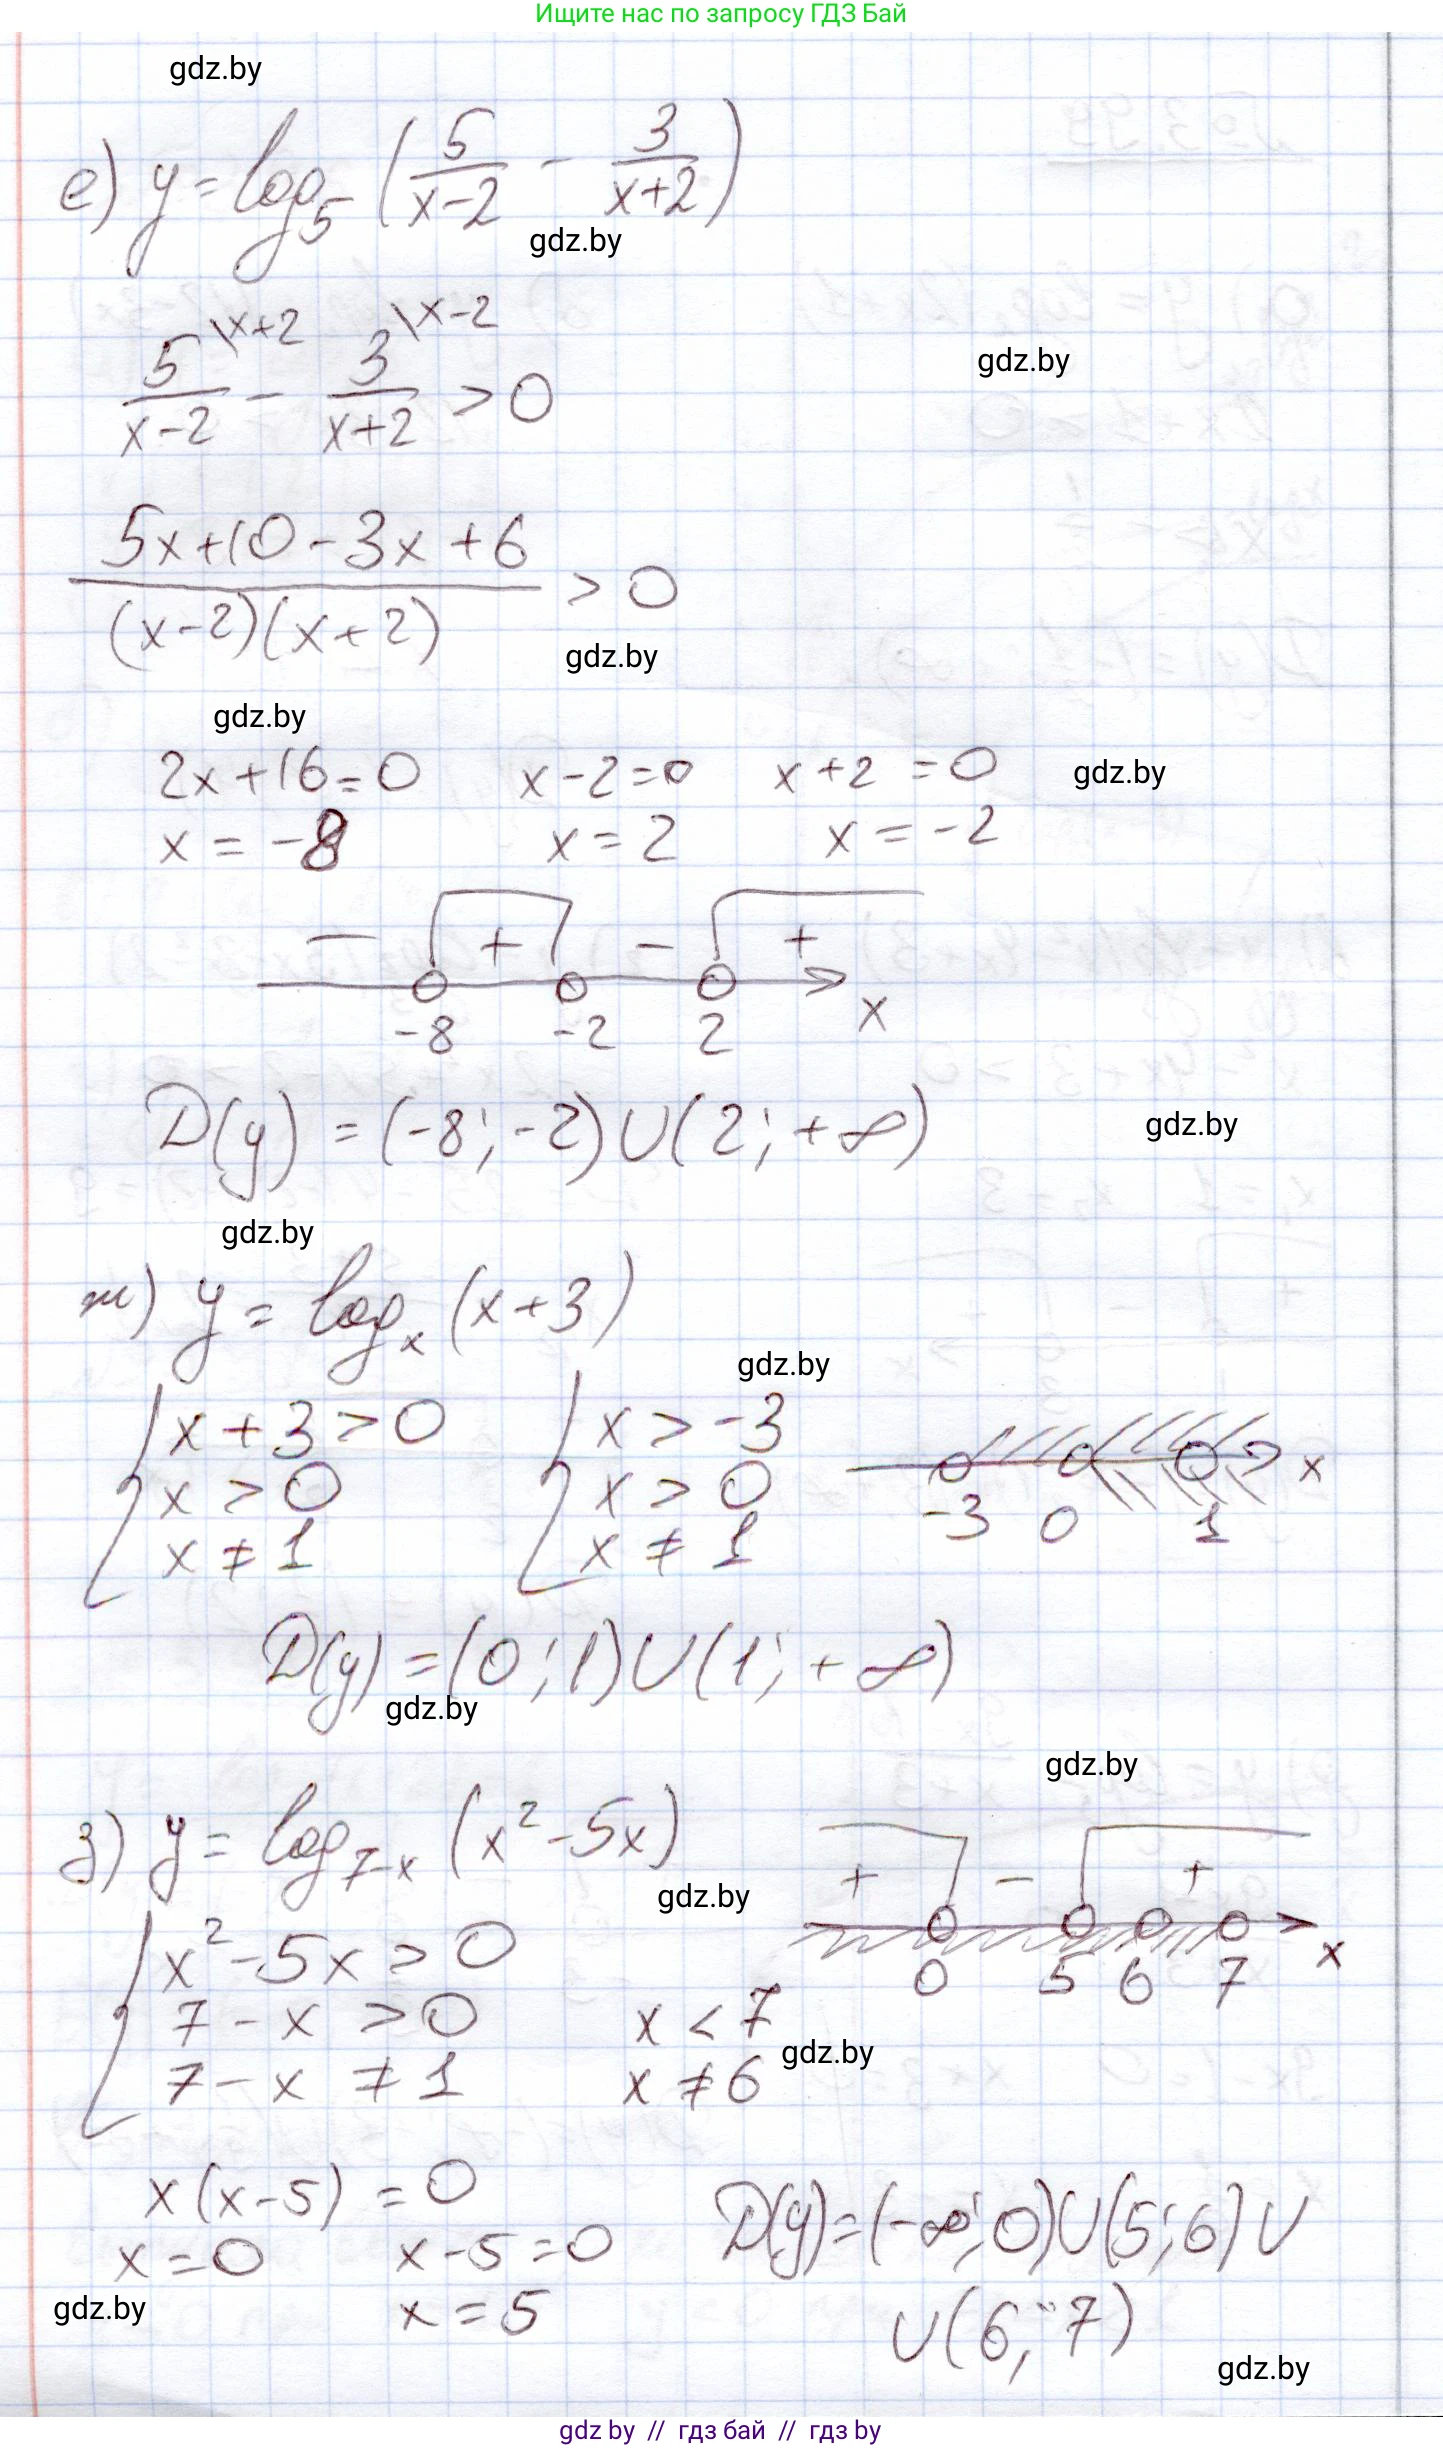 Ищите нас по запросу ГДЗ Бай
gdz.by
е) y = log₅ (5/(x-2) - 3/(x+2))
gdz.by
5\x+2/(x-2) - 3\x-2/(x+2) > 0
gdz.by
(5x+10-3x+6)/((x-2)(x+2)) > 0
gdz.by
gdz.by
2x+16=0 x-2=0 x+2=0
gdz.by
x = -8 x = 2 x = -2
- + - +
-8 -2 2 x
D(y) = (-8; -2) ∪ (2; +∞)
gdz.by
gdz.by
ж) y = logₓ (x+3)
gdz.by
{ x+3 > 0 { x > -3
x > 0 x > 0
x ≠ 1 x ≠ 1
-3 0 1 x
D(y) = (0; 1) ∪ (1; +∞)
gdz.by
gdz.by
з) y = log₇₋ₓ (x² - 5x)
gdz.by
+ - +
0 5 6 7 x
{ x² - 5x > 0
7 - x > 0 x < 7
7 - x ≠ 1 x ≠ 6
gdz.by
x(x-5) = 0
x = 0 x-5 = 0
x = 5
D(y) = (-∞; 0) ∪ (5; 6) ∪
∪ (6; 7)
gdz.by
gdz.by
gdz by // гдз бай // гдз by